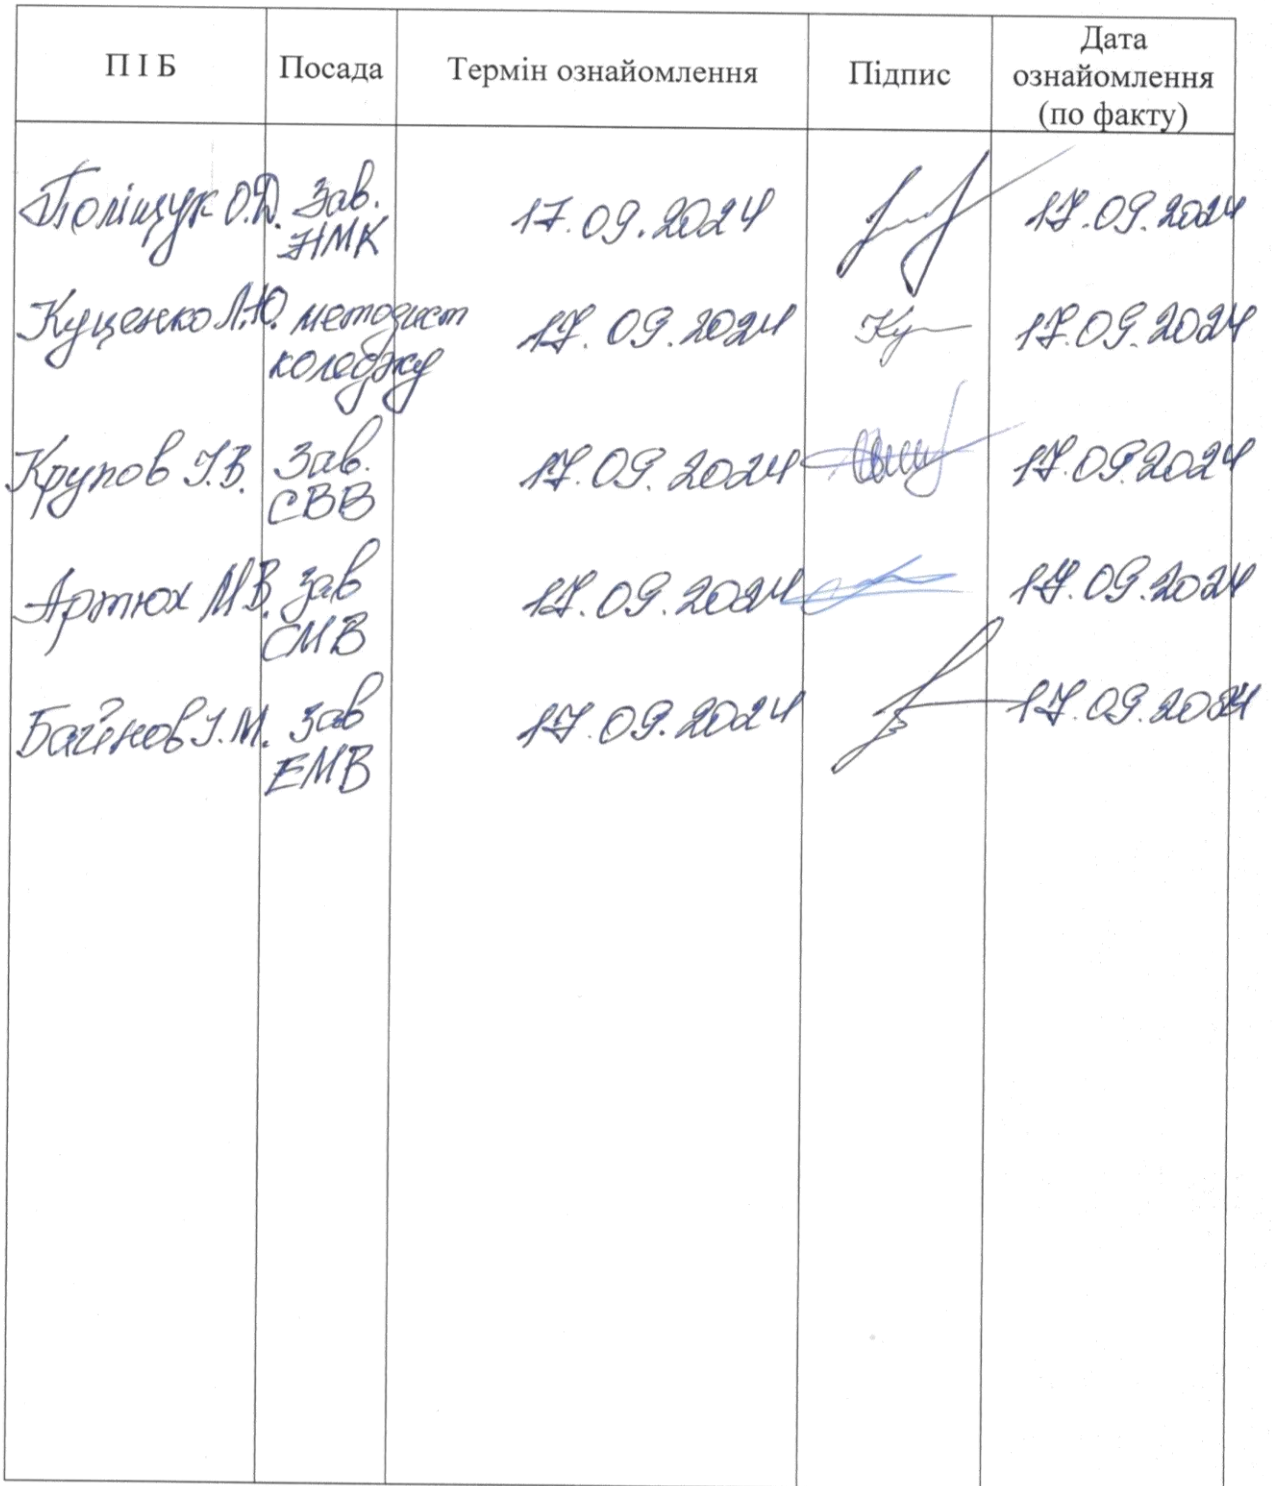 П І Б Посада Термін ознайомлення Підпис Дата ознайомлення (по факту)
Поліщук О.Д. Зав. НМК 17.09.2024 17.09.2024
Куценко Л.Ю. методист коледжу 17.09.2024 Ку 17.09.2024
Крупов І.В. Зав. СВВ 17.09.2024 17.09.2024
Артюх М.В. Зав СМВ 17.09.2024 17.09.2024
Баінов І.М. Зав ЕМВ 17.09.2024 17.09.2024